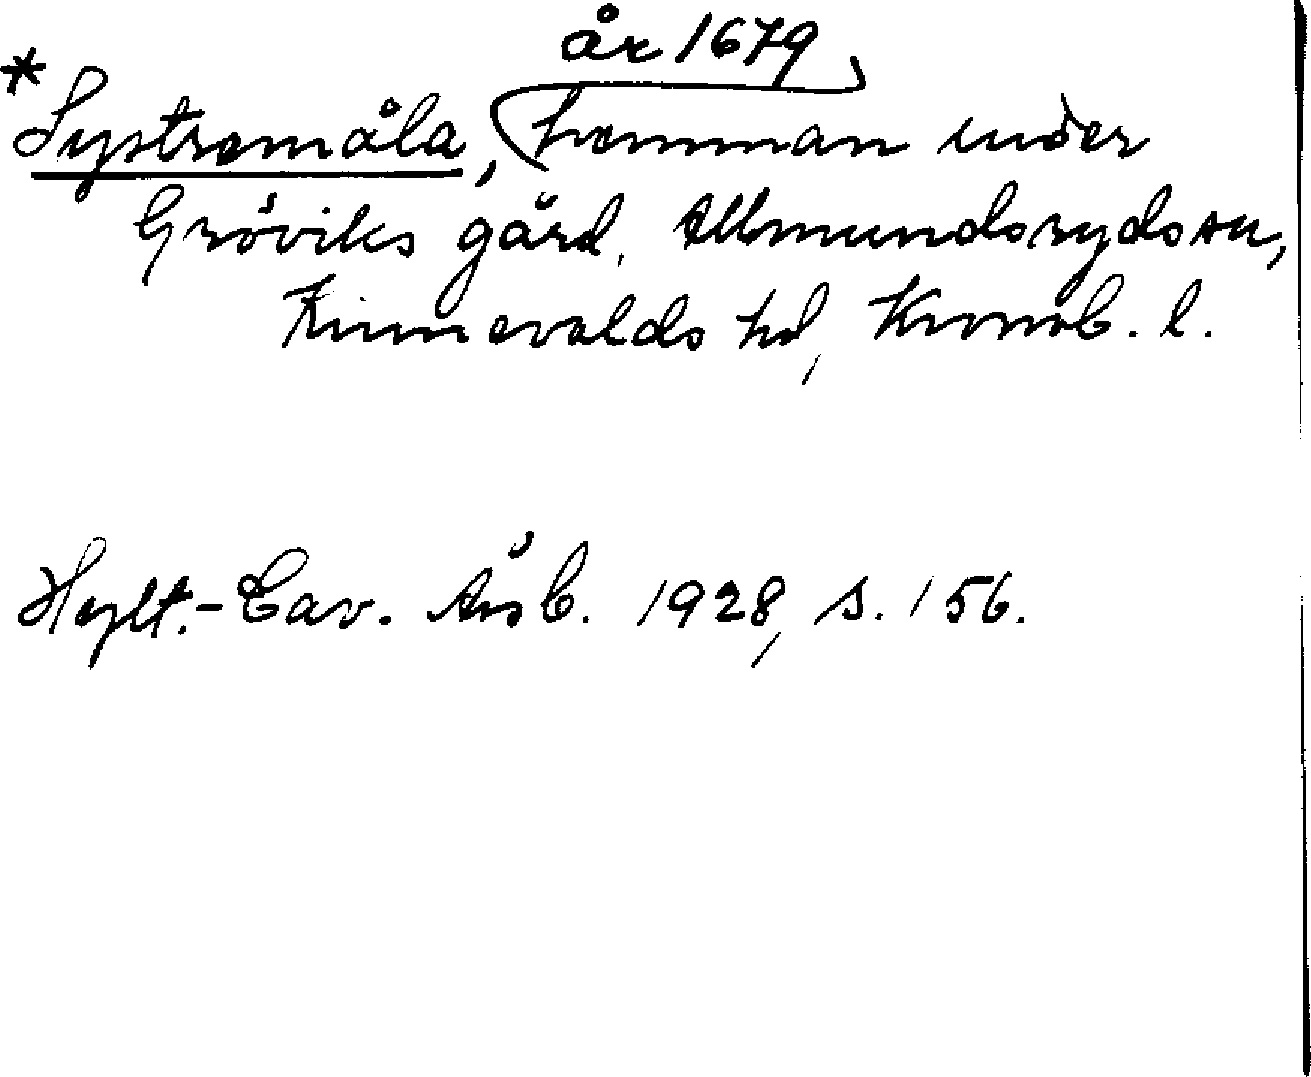 år 1679
*Systramåla, hemman under
Gröviks gård, Allmundsryds sn,
Kinnevalds hd, Kronob. l.
Hylt.-Cav. Årsb. 1928, s. 156.